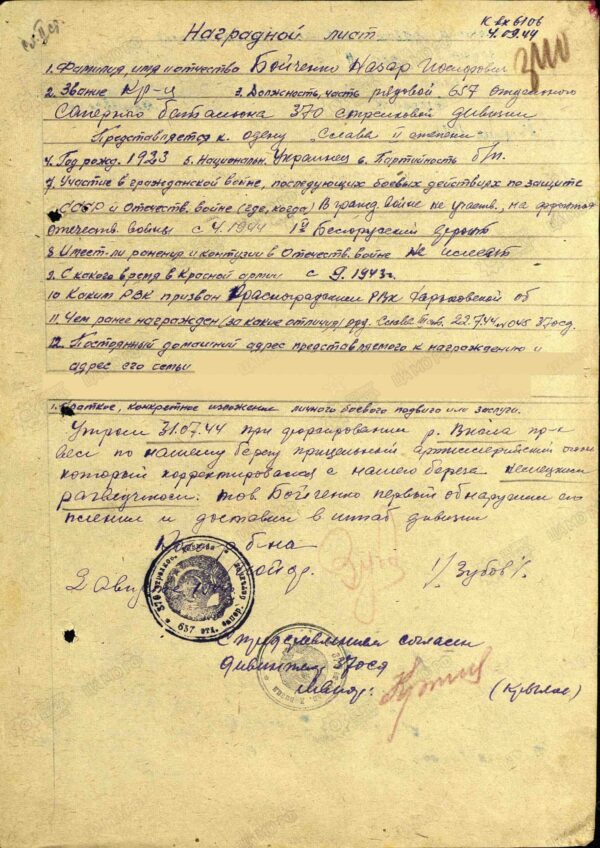 К вх 6106
4.09.44
Сл. II ст.
Наградной лист
1. Фамилия, имя и отчество Бойченко Назар Иосифович
2. Звание Кр-ц 3. Должность, часть рядовой 657 отдельного
Саперного батальона 370 стрелковой дивизии
Представляется к ордену "Слава II степени
4. Год рожд. 1923 5. Национальн. Украинец 6. Партийность б/п.
7. Участие в гражданской войне, последующих боевых действиях по защите
СССР и Отечеств. войне (где, когда) В гражд. войне не участв., на фронтах
отечеств войны с 4.1944 1й Белорусский фронт
8. Имеет-ли ранения и контузии в Отечеств. войне Не имеет
9. С какого время в Красной армии с 9.1943г.
10. Каким РВК призван Красноградским РВК Харьковской об
11. Чем ранее награжден (за какие отличия) орд. Слава IIIст. 22.7.44 №045 370сд.
12. Постоянный домашний адрес представляемого к награждению и
адрес его семьи
1. Краткое, конкретное изложение личного боевого подвига или заслуги.
Утром 31.07.44 при форсировании р. Висла пр-к
вел по нашему берегу прицельный артиллерийский огонь
который корректировался с нашего берега немецким
разведчиком. тов Бойченко первый обнаружил его
пленил и доставил в штаб дивизии
2 Авг /Зубов/.
С представлением согласен
Дивинженер 370сд
Майор: (Крылов)